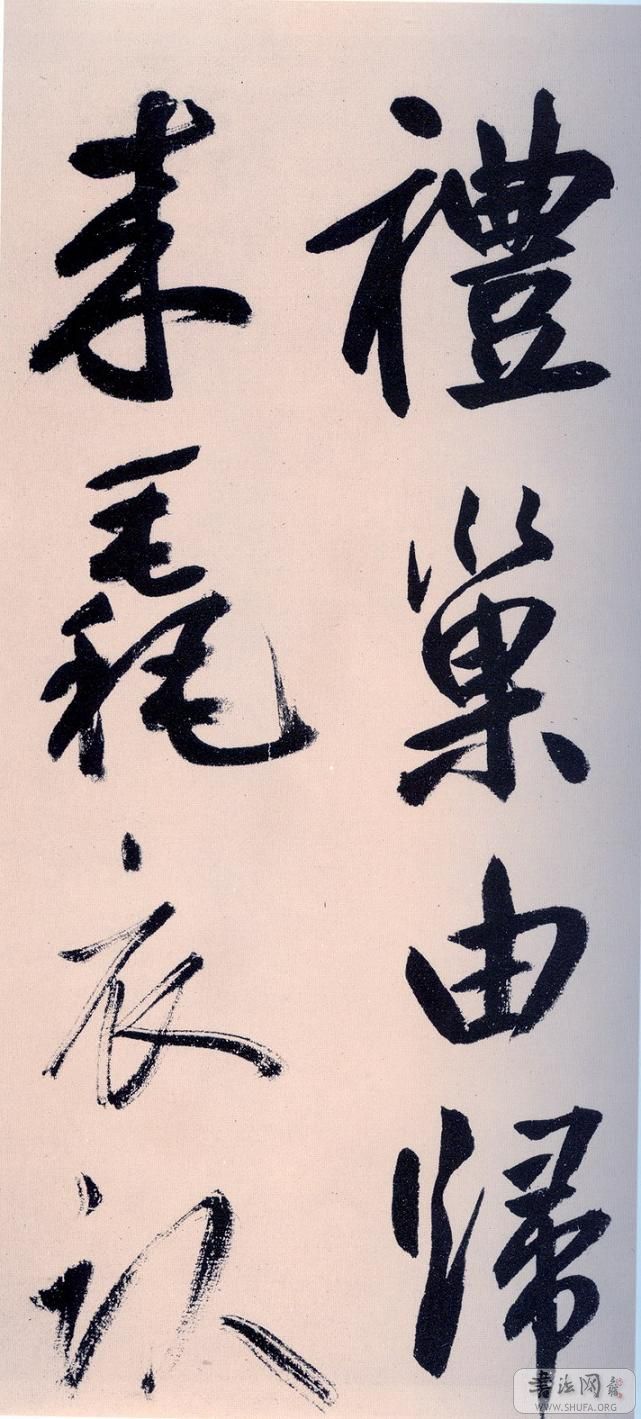 禮巢由歸
来毳衣
書法网
WWW.SHUFA.ORG